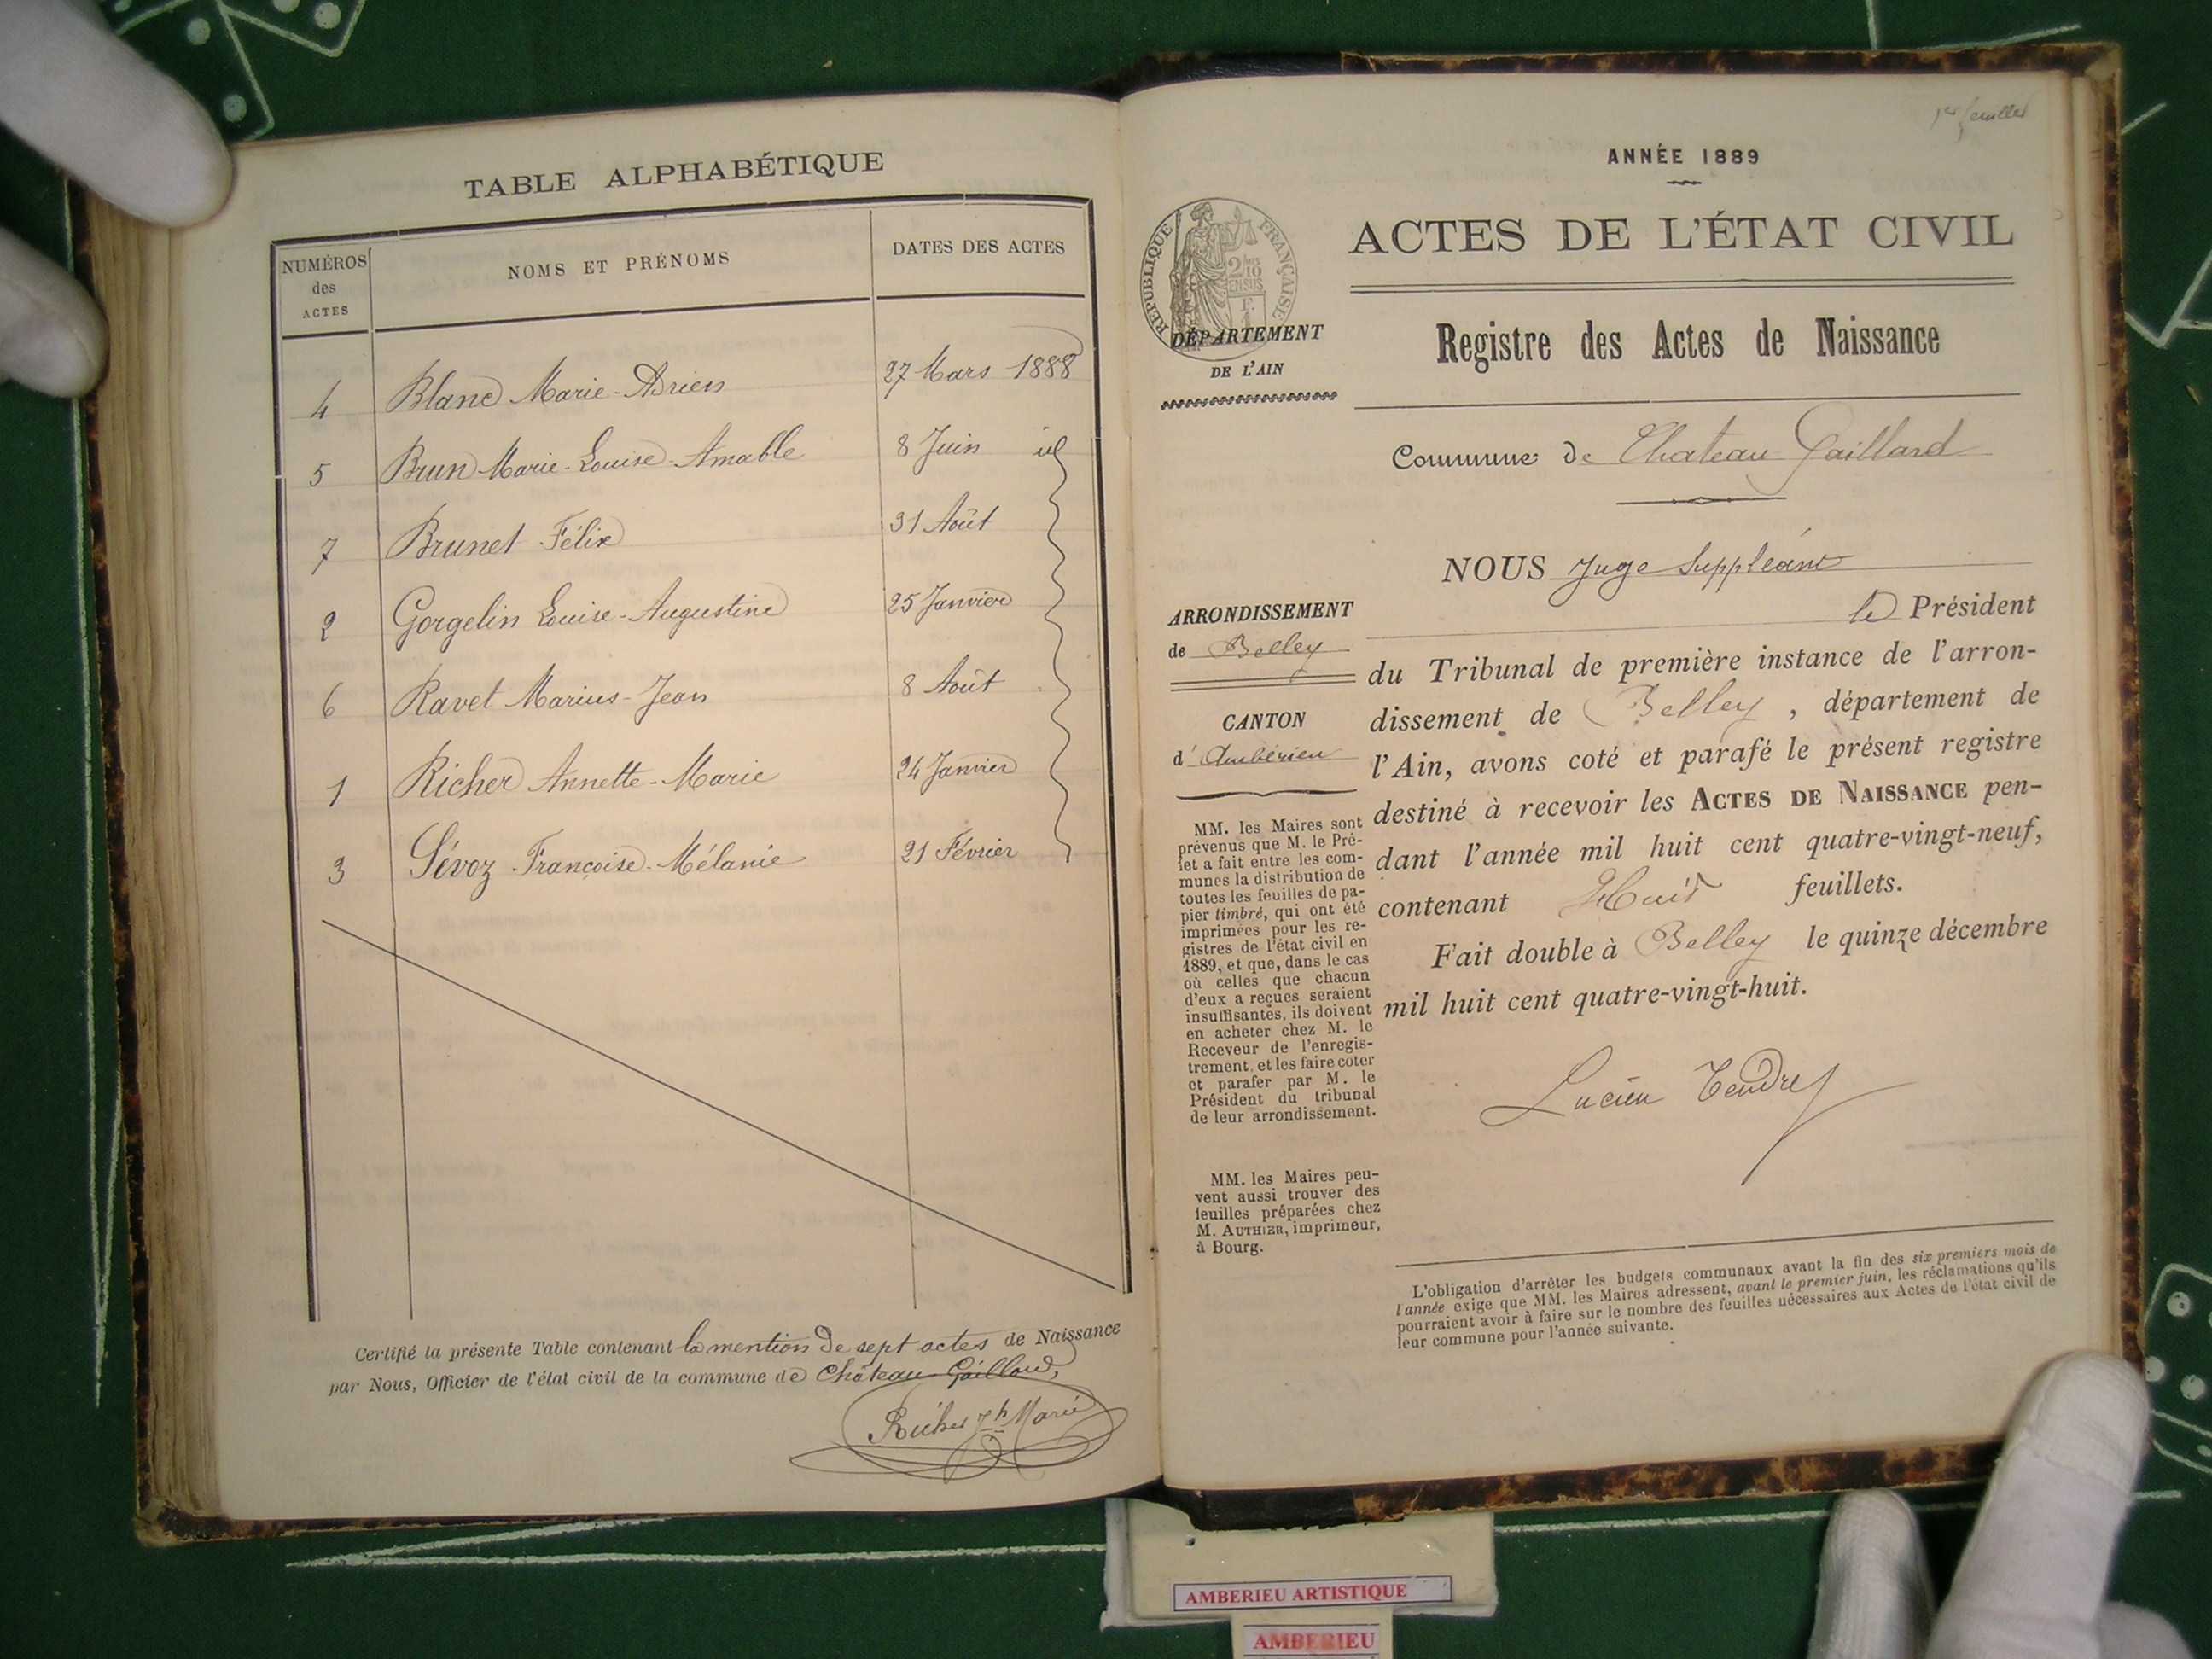 TABLE ALPHABÉTIQUE
NUMÉROS des ACTES NOMS ET PRÉNOMS DATES DES ACTES
4 Blanc Marie-Adrien 27 Mars 1888
5 Brun Marie-Louise-Amable 8 Juin id
7 Brunet Félix 31 Août
2 Gorgelin Louise-Augustine 25 Janvier
6 Ravet Marius-Jean 8 Août
1 Richer Annette-Marie 24 Janvier
3 Sévoz Françoise-Mélanie 21 Février
Certifié la présente Table contenant la mention de sept actes de Naissance
par Nous, Officier de l'état civil de la commune de Château-Gaillard,
Richer Jh Marie
1er feuillet
ANNÉE 1889
ACTES DE L'ÉTAT CIVIL
RÉPUBLIQUE FRANÇAISE
DÉPARTEMENT
DE L'AIN
Registre des Actes de Naissance
Commune de Chateau Gaillard
NOUS Juge Suppléant
le Président
du Tribunal de première instance de l'arron-
dissement de Belley, département de
l'Ain, avons coté et parafé le présent registre
destiné à recevoir les ACTES DE NAISSANCE pen-
dant l'année mil huit cent quatre-vingt-neuf,
contenant Huit feuillets.
Fait double à Belley le quinze décembre
mil huit cent quatre-vingt-huit.
Lucien Tendret
ARRONDISSEMENT
de Belley
CANTON
d'Ambérieu
MM. les Maires sont
prévenus que M. le Pré-
fet a fait entre les com-
munes la distribution de
toutes les feuilles de pa-
pier timbré, qui ont été
imprimées pour les re-
gistres de l'état civil en
1889, et que, dans le cas
où celles que chacun
d'eux a reçues seraient
insuffisantes, ils doivent
en acheter chez M. le
Receveur de l'enregis-
trement, et les faire coter
et parafer par M. le
Président du tribunal
de leur arrondissement.
MM. les Maires peu-
vent aussi trouver des
feuilles préparées chez
M. AUTHIER, imprimeur,
à Bourg.
L'obligation d'arrêter les budgets communaux avant la fin des six premiers mois de
l'année exige que MM. les Maires adressent, avant le premier juin, les réclamations qu'ils
pourraient avoir à faire sur le nombre des feuilles nécessaires aux Actes de l'état civil de
leur commune pour l'année suivante.
AMBERIEU ARTISTIQUE
AMBERIEU